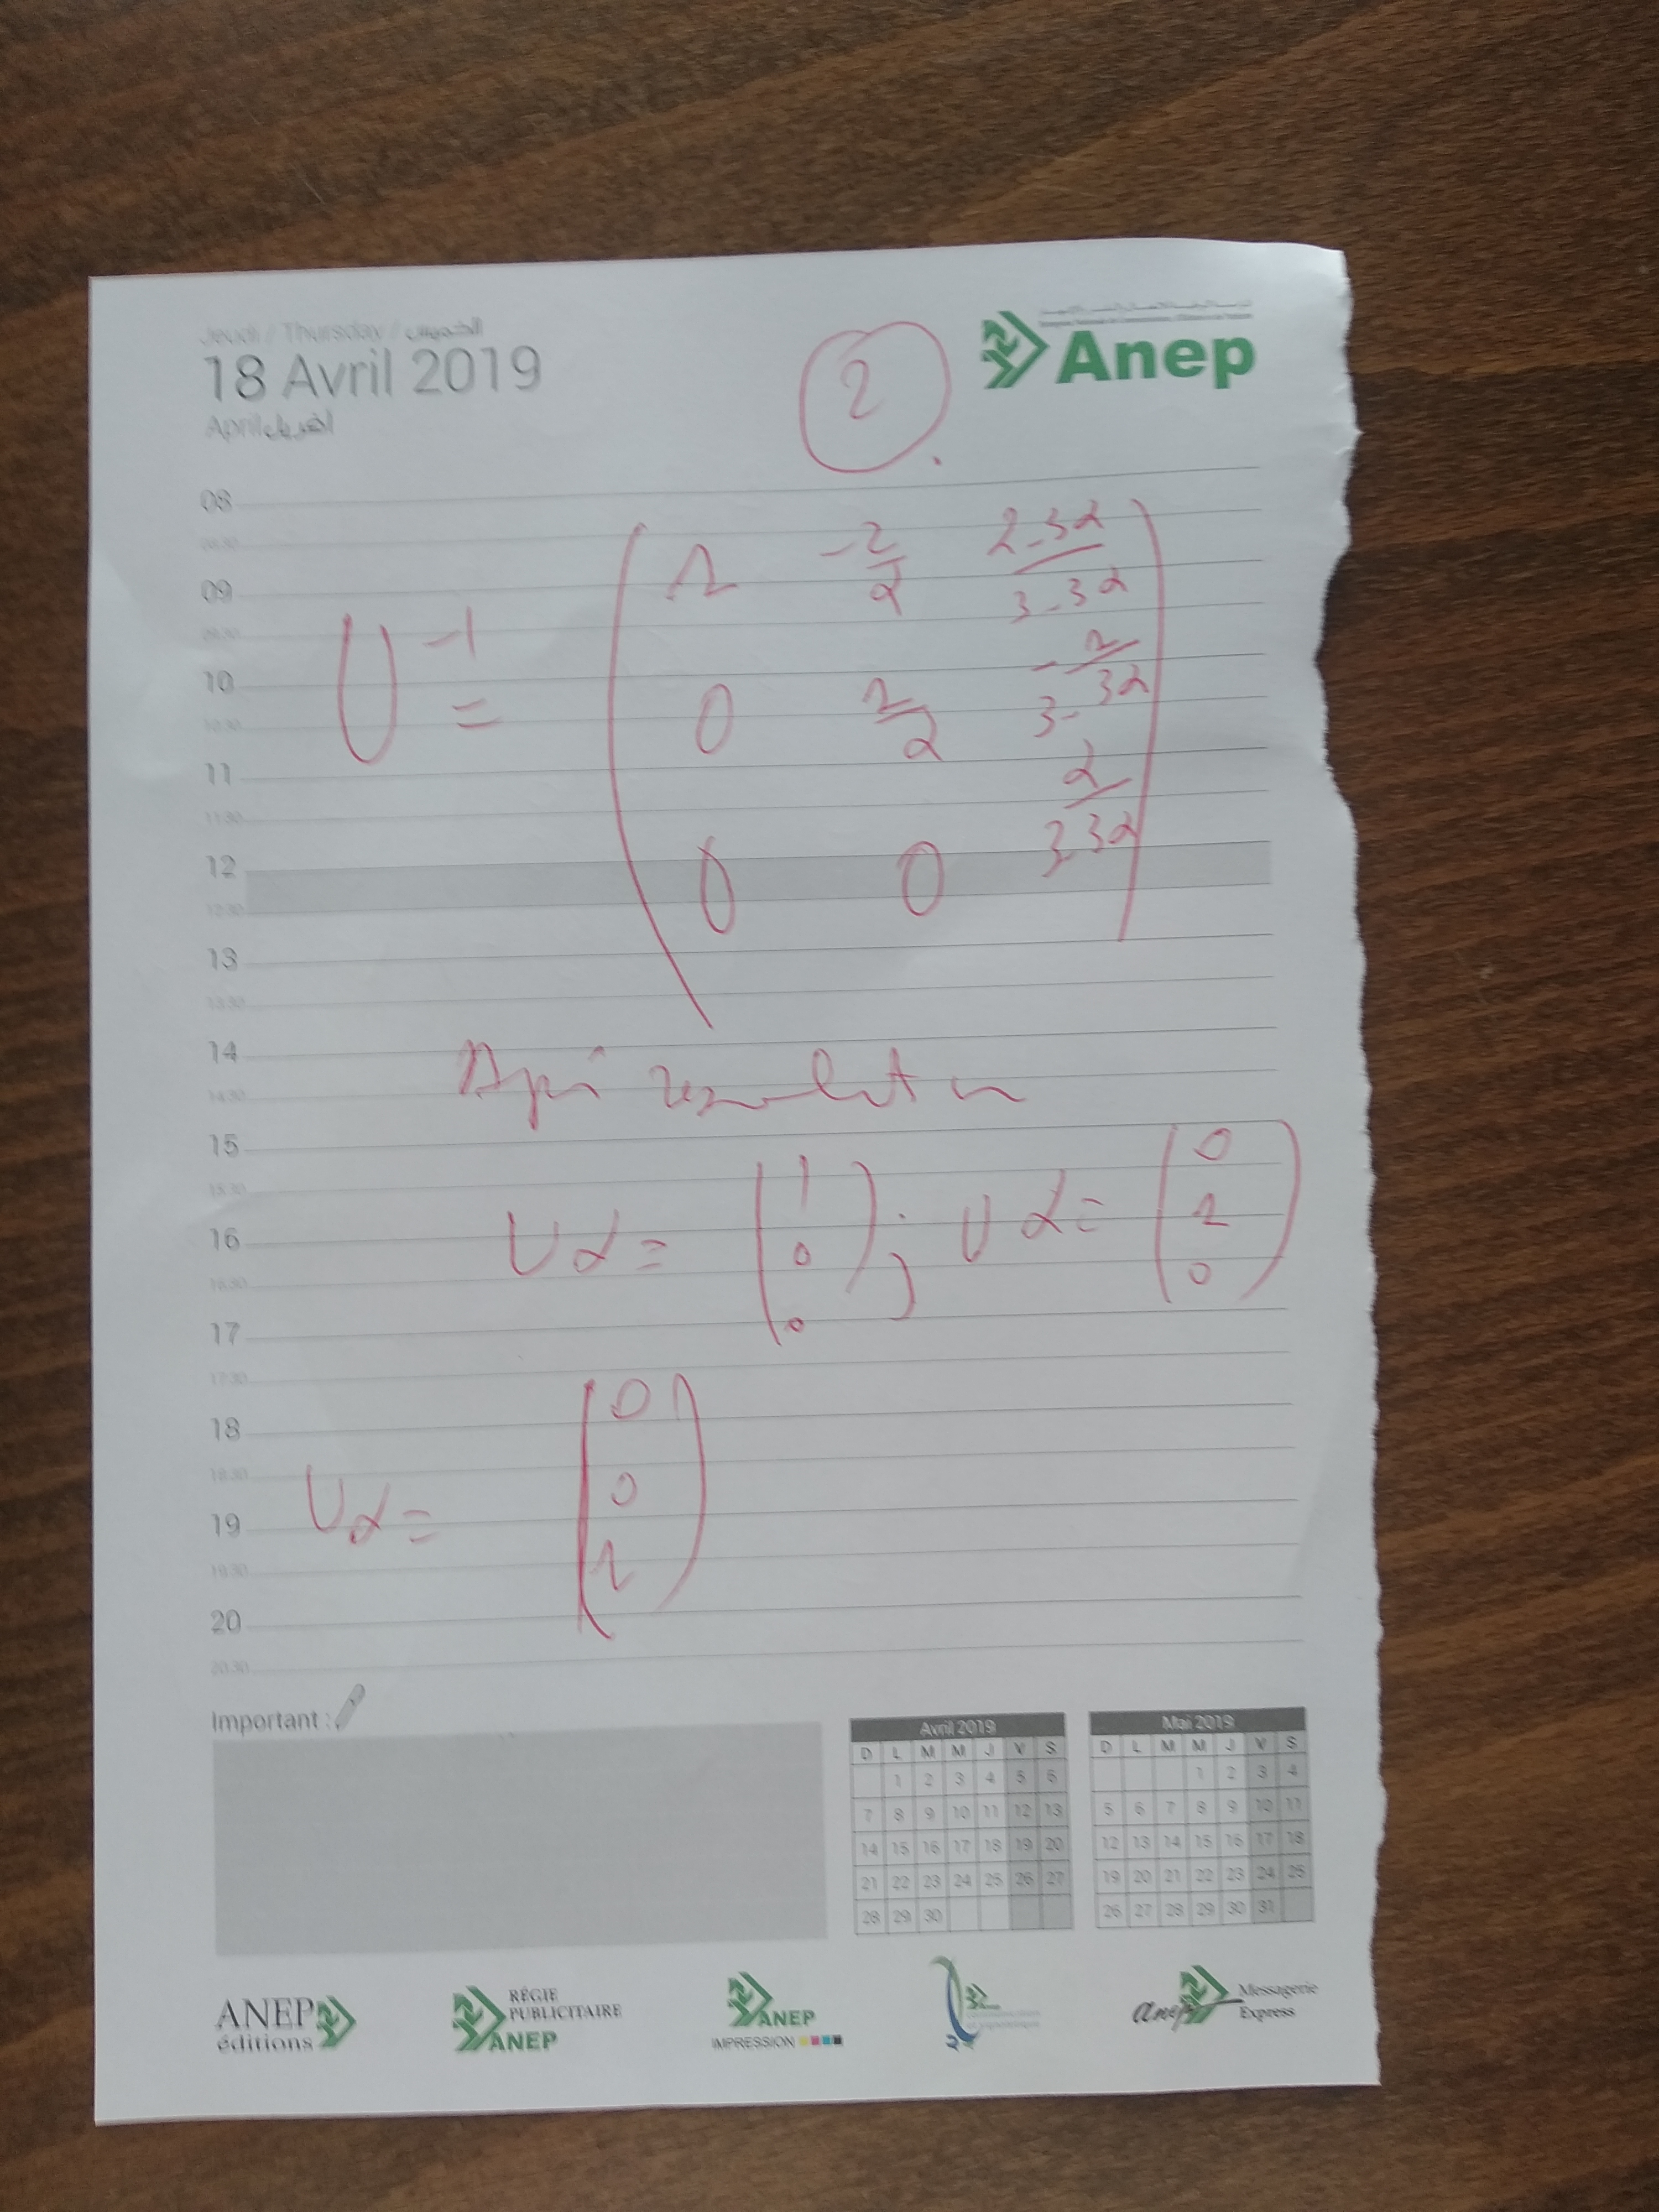 Jeudi / Thursday / الخميس
18 Avril 2019
April أفريل
2
Anep
08
09
10
11
12
13
14
15
16
17
18
19
20
U^-1 = ( 1 -2/α (2-3α)/(3-3α)
0 1/α -1/(3-3α)
0 0 α/(3-3α) )
Uα = (1 0 0) ; Uα = (0 1 0)
Uα = (0 0 1)
Important :
Avril 2019
D L M M J V S
1 2 3 4 5 6
7 8 9 10 11 12 13
14 15 16 17 18 19 20
21 22 23 24 25 26 27
28 29 30
Mai 2019
D L M M J V S
1 2 3 4
5 6 7 8 9 10 11
12 13 14 15 16 17 18
19 20 21 22 23 24 25
26 27 28 29 30 31
ANEP
éditions
RÉGIE
PUBLICITAIRE
ANEP
ANEP
IMPRESSION
anep Messagerie
Express